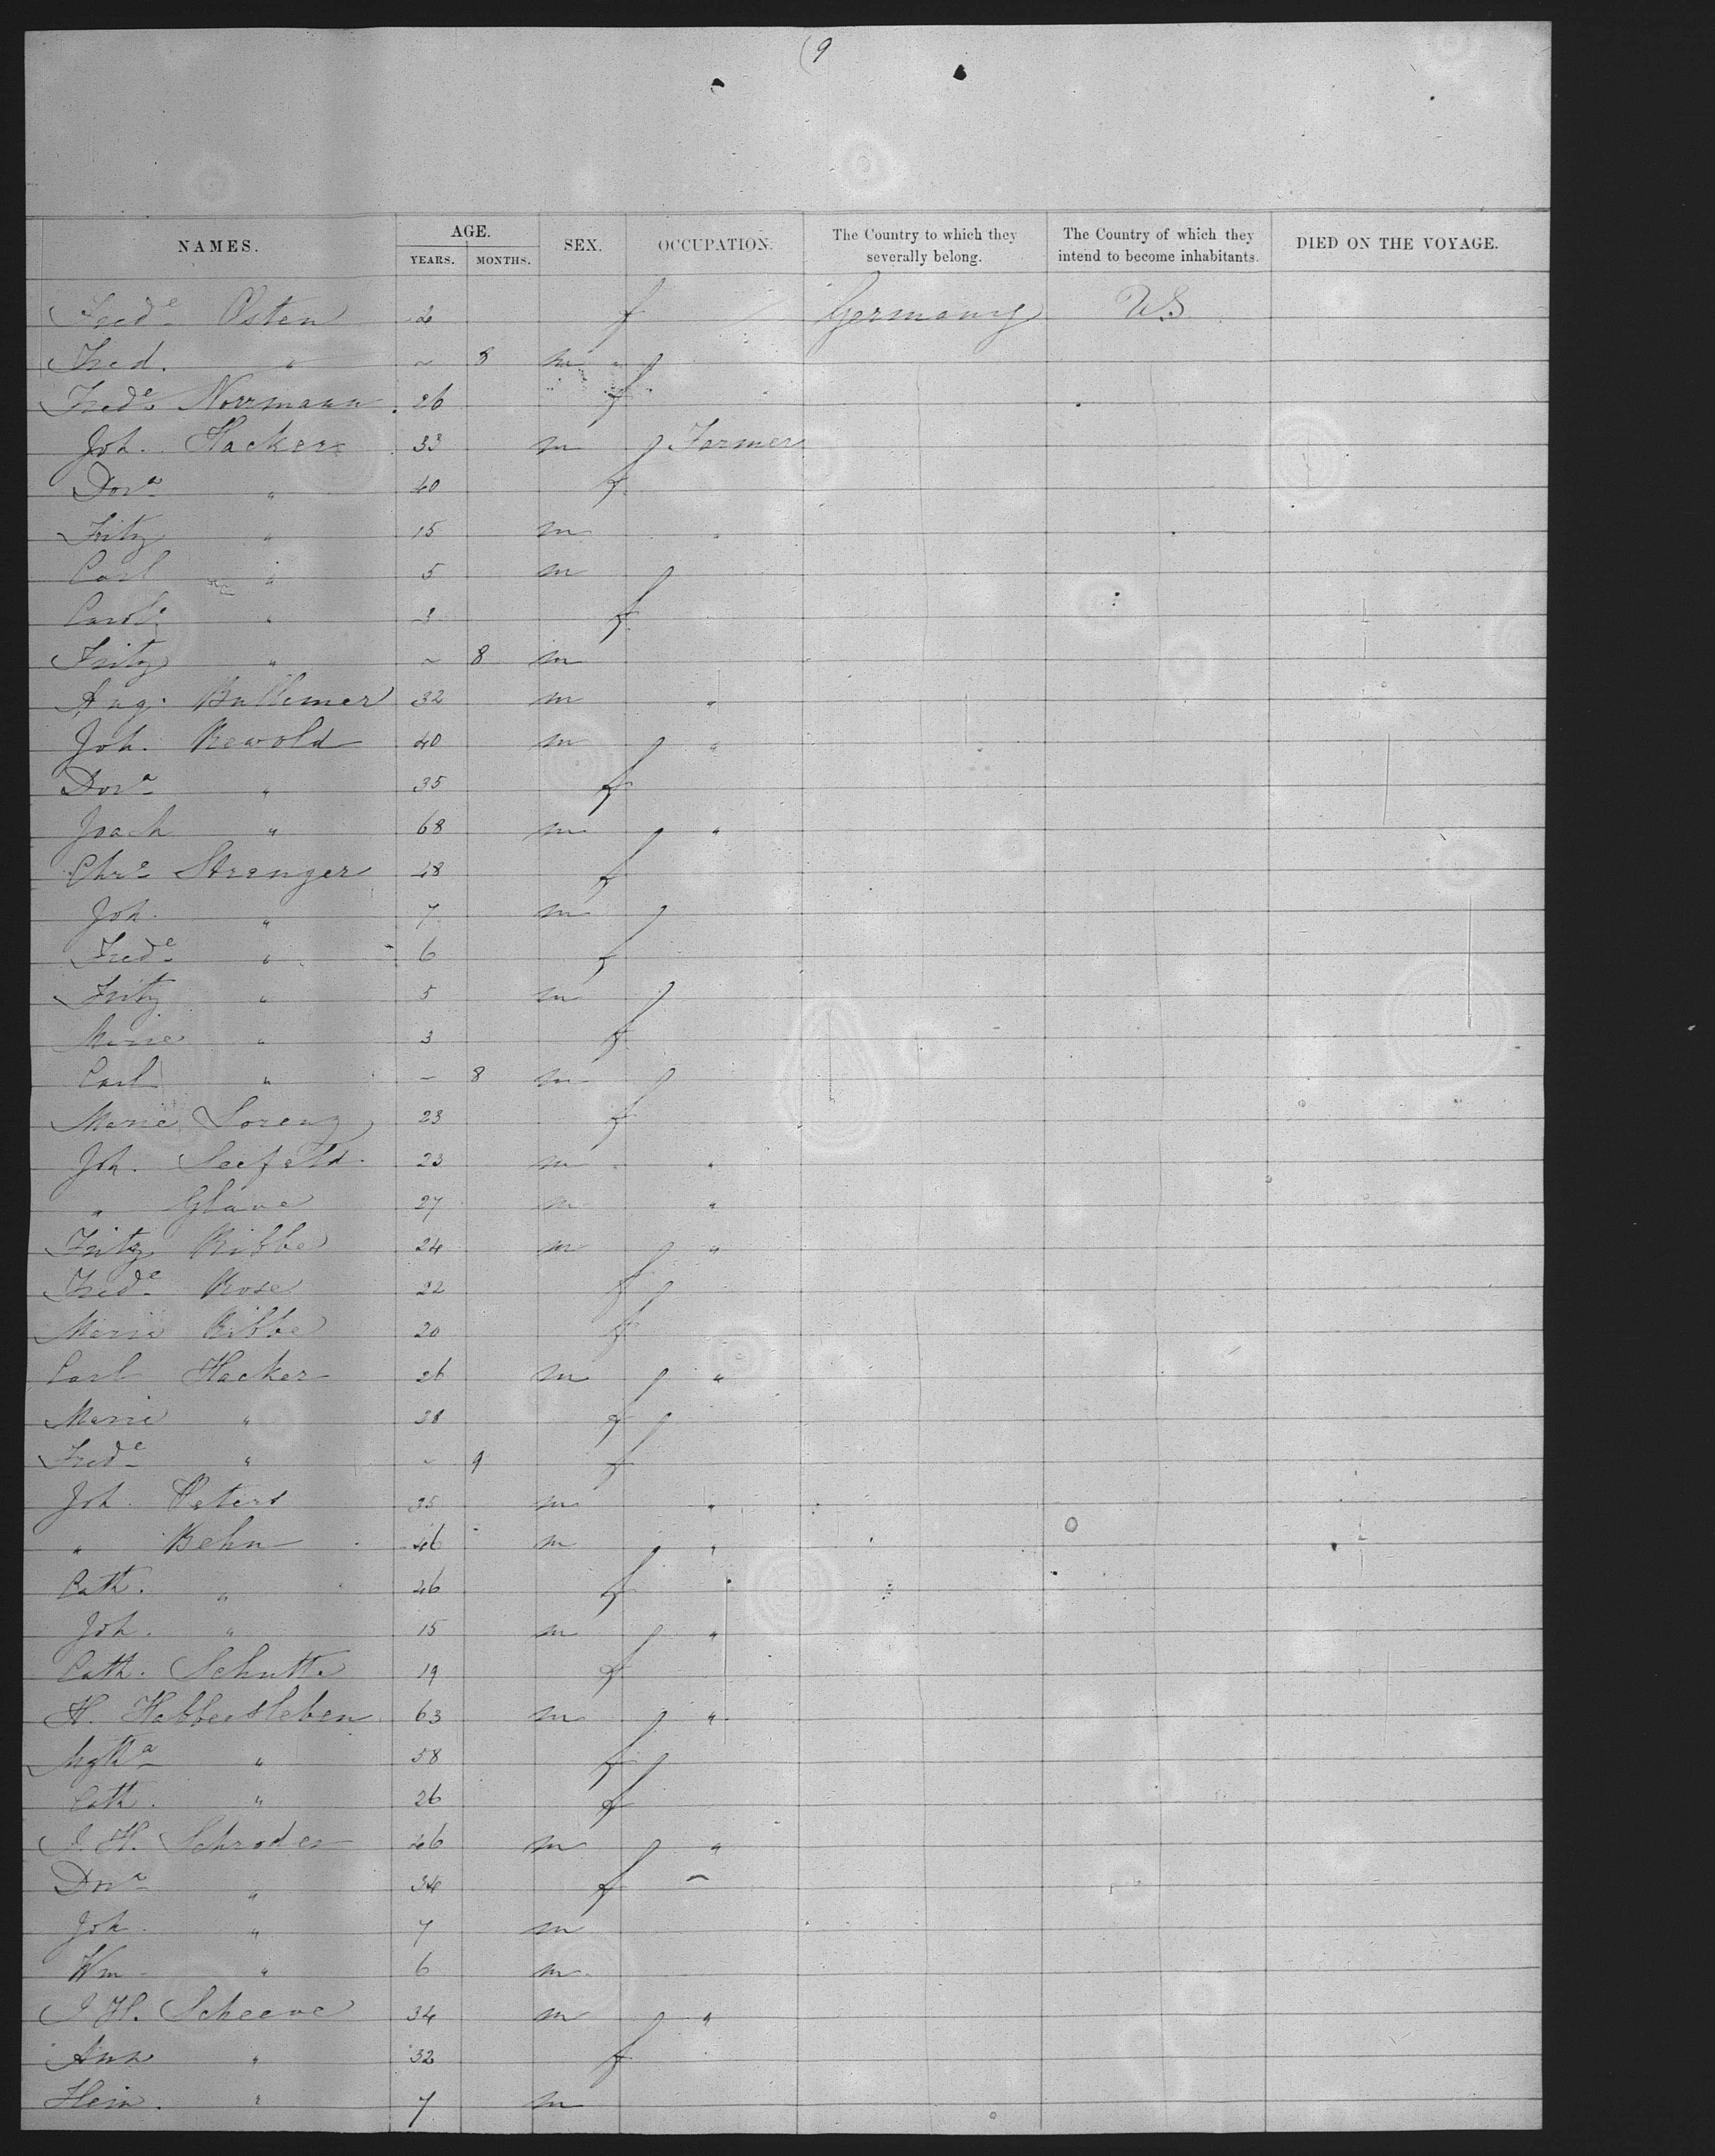 (9
NAMES. AGE. YEARS. MONTHS. SEX. OCCUPATION. The Country to which they severally belong. The Country of which they intend to become inhabitants. DIED ON THE VOYAGE.
Fredᵉ Osten 2 f Germany U.S
Fred. " ~ 3 m
Fredᵉ Norrmann 26 f
Joh. Hacker 33 m Farmer
Dorᵃ " 40 f
Fritz " 15 m "
Carl " 5 m
Carolᵉ " 3 f
Fritz " ~ 8 m
Aug. Bullemer 32 m "
Joh. Rewold 40 m "
Dorᵃ " 35 f
Joach " 68 m "
Chrᵉ Stranger 48 f
Joh. " 7 m
Fredᵉ " 6 f
Fritz " 5 m
Marie " 3 f
Carl " – 8 m
Marie Lorenz 23 f
Joh. Seefeld 23 m "
" Glawe 27 m "
Fritz Ribbe 24 m "
Fredᵉ Rose 22 f
Maria Ribbe 20 f
Carl Hacker 26 m "
Marie " 28 f
Fredᵉ " ~ 9 f
Joh. Peters 35 m "
" Behn 46 m "
Cath. " 46 f
Joh. " 15 m "
Cath. Schutte 19 f
H. Habbersleben 63 m "
Mgthᵃ " 58 f
Cath. " 26 f
J. H. Schroder 46 m "
Dorᵃ " 34 f
Joh. " 7 m
Wm " 6 m
J. H. Scheeve 34 m "
Ann " 32 f
Hein. " 7 m